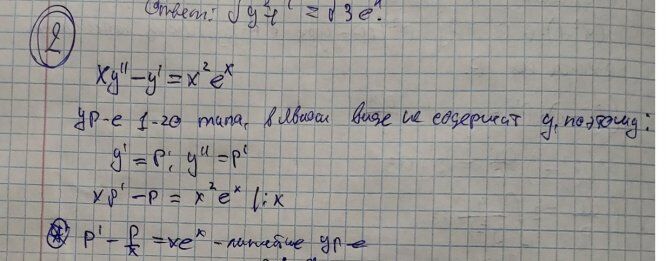 Ответ: √(y²+1) = √3 eˣ.
2
xy'' - y' = x²eˣ
ур-е 1-го типа, в явном виде не содержит y, поэтому:
y' = p; y'' = p'
xp' - p = x²eˣ |:x
p' - p/x = xeˣ - линейное ур-е